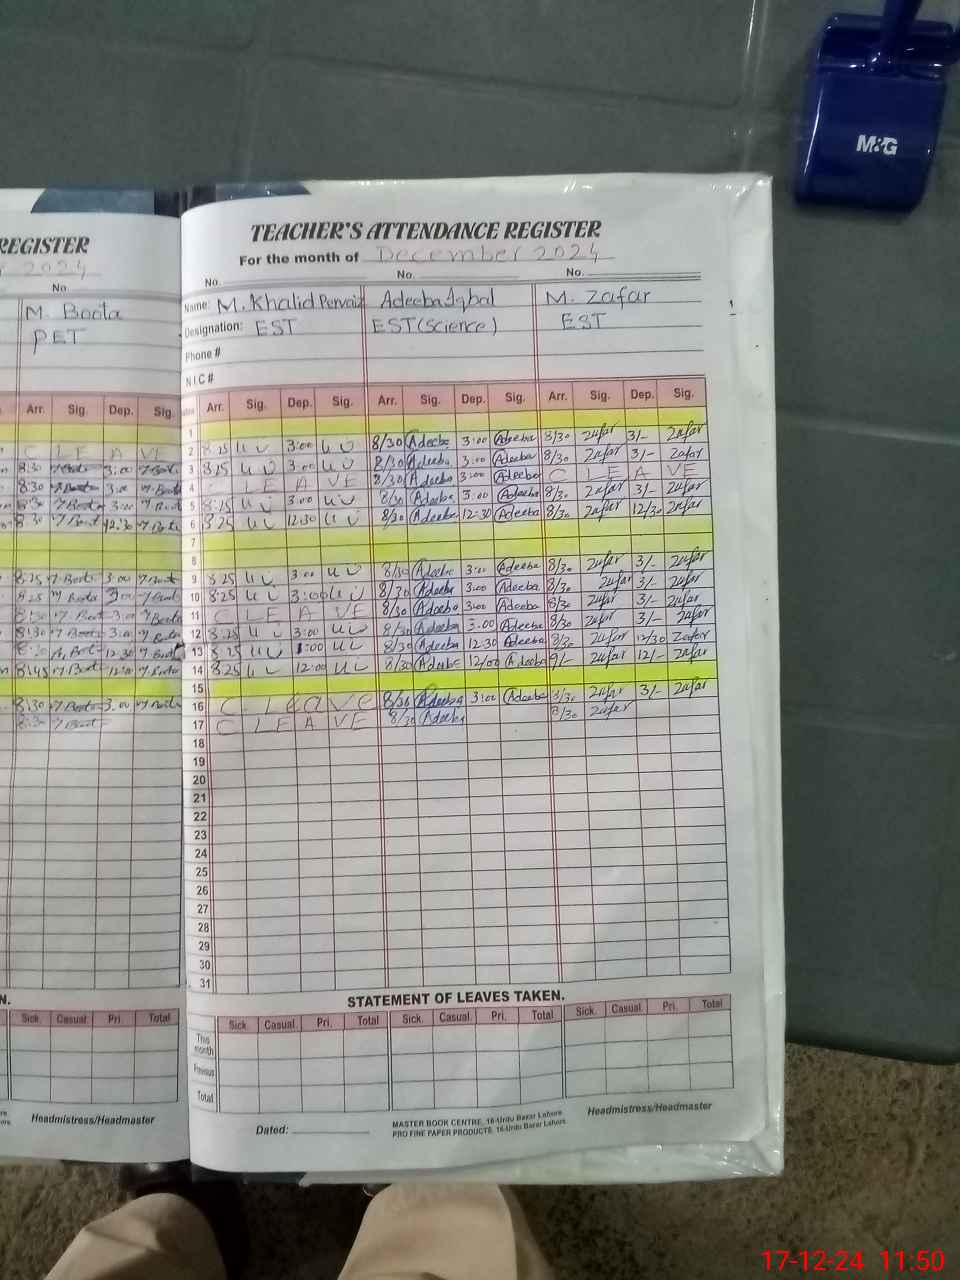 M&G
REGISTER
2024
No.
M. Boota
PET
Arr. Sig. Dep. Sig.
C LEAVE
8:30 3:00
8:30 3:00
8:30 3:00
8:30 12:30
8:25 3:00
8:25 3:00
8:30 3:00
8:30 3:00
8:30 12:30
8:45 12:00
8:30 3:00
8:30
Sick. Casual. Pri. Total
Headmistress/Headmaster
TEACHER'S ATTENDANCE REGISTER
For the month of December 2024
No. No. No.
Name: M. Khalid Pervaiz Adeeba Iqbal M. Zafar
Designation: EST EST (Science) EST
Phone #
N.I.C #
Arr. Sig. Dep. Sig. Arr. Sig. Dep. Sig. Arr. Sig. Dep. Sig.
1
2 8:25 3:00 8/30 Adeeba 3:00 Adeeba 8/30 Zafar 3/- Zafar
3 8:25 3:00 8/30 Adeeba 3:00 Adeeba 8/30 Zafar 3/- Zafar
4 C LEAVE 8/30 Adeeba 3:00 Adeeba C LEAVE
5 8:25 3:00 8/30 Adeeba 3:00 Adeeba 8/30 Zafar 3/- Zafar
6 8:25 12:30 8/30 Adeeba 12-30 Adeeba 8/30 Zafar 12/30 Zafar
7
8
9 8:25 3:00 8/30 Adeeba 3:00 Adeeba 8/30 Zafar 3/- Zafar
10 8:25 3:00 8/30 Adeeba 3:00 Adeeba 8/30 Zafar 3/- Zafar
11 C LEAVE 8/30 Adeeba 3:00 Adeeba 8/30 Zafar 3/- Zafar
12 8:25 3:00 8/30 Adeeba 3:00 Adeeba 8/30 Zafar 3/- Zafar
13 8:25 1:00 8/30 Adeeba 12:30 Adeeba 8/30 Zafar 12/30 Zafar
14 8:25 12:00 8/30 Adeeba 12/00 Adeeba 9/- Zafar 12/- Zafar
15
16 C. Leave 8/30 Adeeba 3:00 Adeeba 8/30 Zafar 3/- Zafar
17 C LEAVE 8/30 Adeeba 8/30 Zafar
18
19
20
21
22
23
24
25
26
27
28
29
30
31
STATEMENT OF LEAVES TAKEN.
Sick. Casual. Pri. Total Sick. Casual. Pri. Total Sick. Casual. Pri. Total
This month
Previous
Total
Dated:
MASTER BOOK CENTRE, 16-Urdu Bazar Lahore.
PRO FINE PAPER PRODUCTS, 16-Urdu Bazar Lahore.
Headmistress/Headmaster
17-12-24 11:50